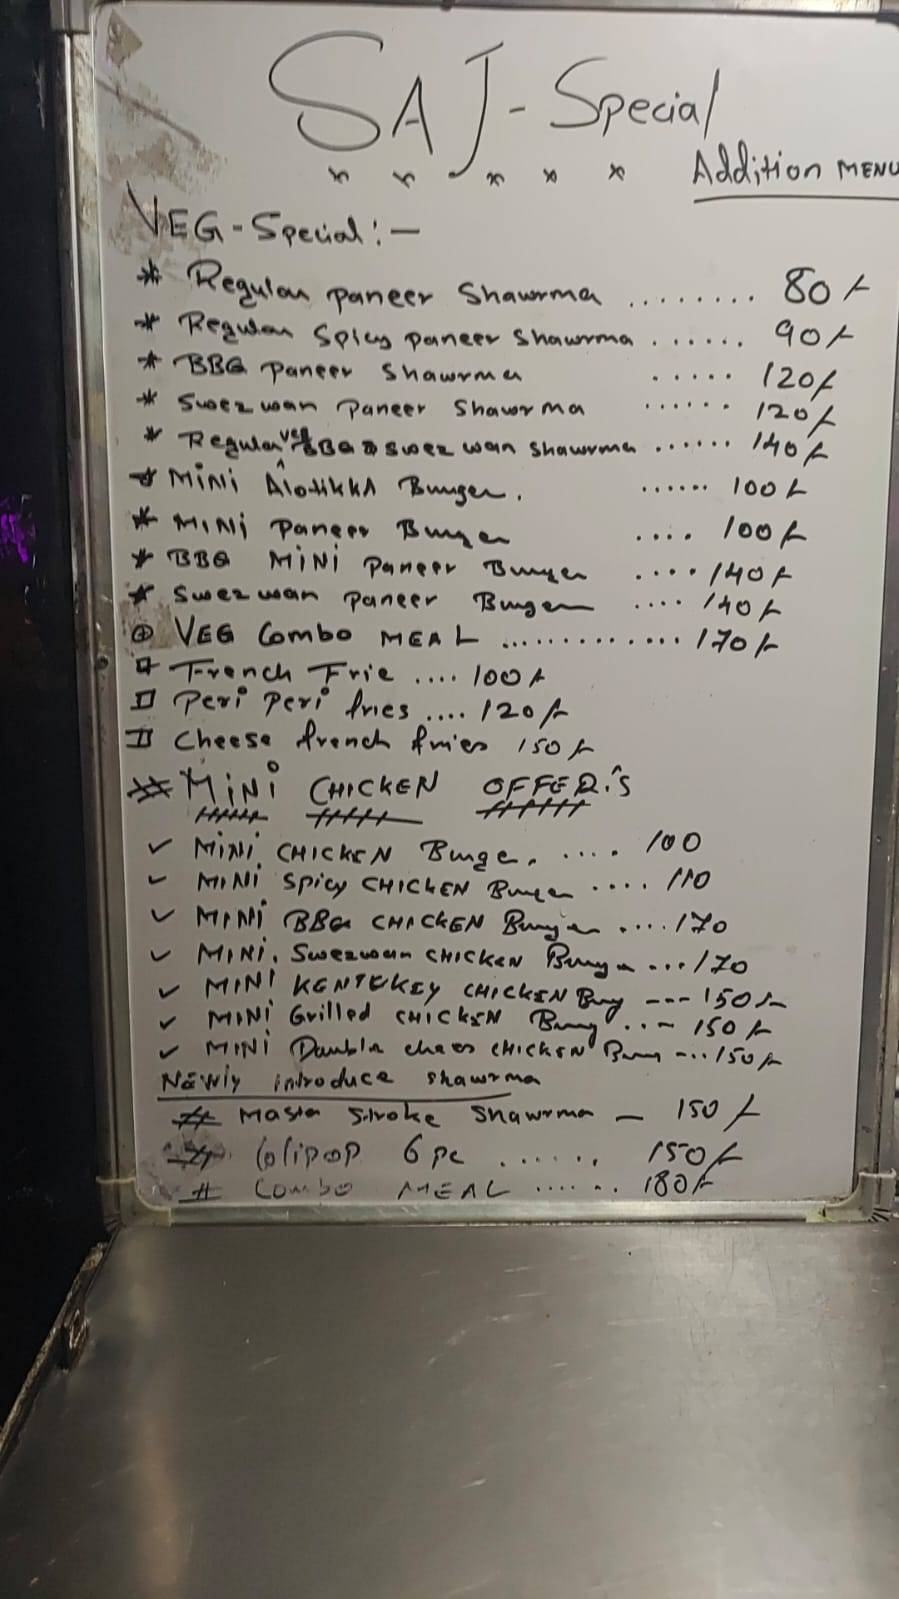 SAJ - Special
Addition MENU
VEG - Special :-
* Regular paneer Shawrma ........ 80/-
* Regular Spicy paneer Shawrma ...... 90/-
* BBQ Paneer Shawrma ..... 120/-
* Swezwan Paneer Shawrma ...... 120/-
* Regular veg BBQ Swezwan Shawrma ...... 140/-
* MiNi Alotikka Burger. ...... 100/-
* MiNi Paneer Burger .... 100/-
* BBQ MiNi Paneer Burger .... 140/-
* Swezwan Paneer Burger .... 140/-
VEG Combo MEAL ............. 170/-
French Frie .... 100/-
Peri Peri fries .... 120/-
Cheese french fries 150/-
# MiNi CHICKEN OFFER'S
✓ MiNi CHICKEN Burger. .... 100
✓ MiNi Spicy CHICKEN Burger .... 110
✓ MiNi BBQ CHICKEN Burger .... 170
✓ MiNi. Swezwan CHICKEN Burger ... 170
✓ MINI KENTUKEY CHICKEN Burg --- 150/-
✓ MINI Grilled CHICKEN Burg ... 150/-
✓ MINI Dauble chees CHICKEN Burg ... 150/-
Newly introduce shawrma
# Master Stroke Shawrma - 150/-
# Lolipop 6 pc ...... 150/-
# Combo MEAL ...... 180/-